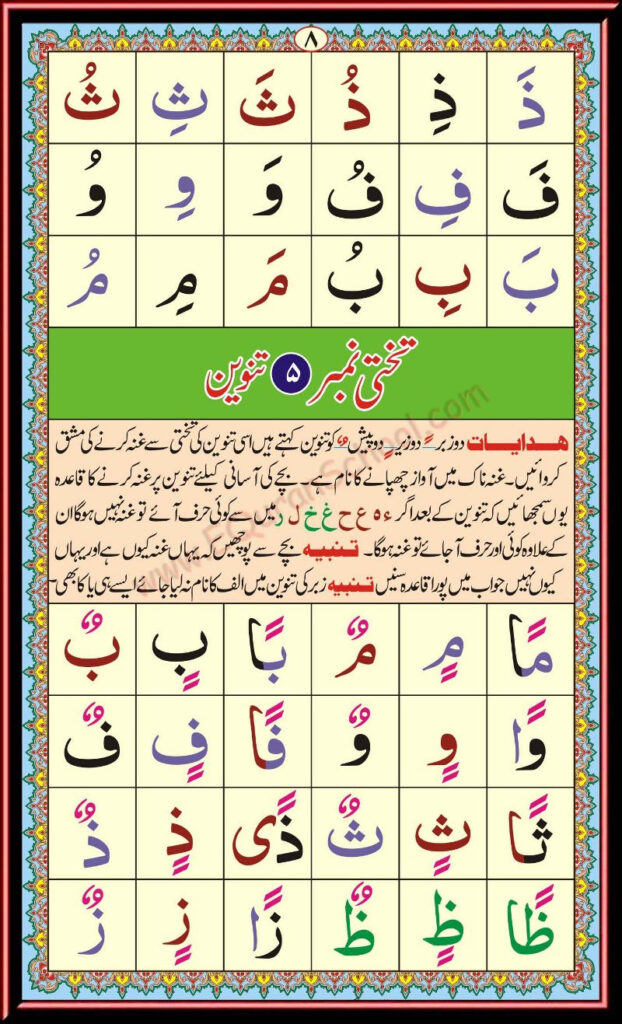 ۸
ذَ ذِ ذُ ثَ ثِ ثُ
فَ فِ فُ وَ وِ وُ
بَ بِ بُ مَ مِ مُ
تختی نمبر ۵ تنوین
ھدایات دو زبر ـً دو زیر ـٍ دو پیش ـٌ کو تنوین کہتے ہیں اسی تنوین کی تختی سے غنہ کرنے کی مشق
کروائیں۔ غنہ ناک میں آواز چھپانے کا نام ہے۔ بچے کی آسانی کیلئے تنوین پر غنہ کرنے کا قاعدہ
یوں سمجھائیں کہ تنوین کے بعد اگر ء ہ ع ح غ خ ل ر میں سے کوئی حرف آئے تو غنہ نہیں ہوگا ان
کے علاوہ کوئی اور حرف آجائے تو غنہ ہوگا۔ تنبیہ بچے سے پوچھیں کہ یہاں غنہ کیوں ہے اور یہاں
کیوں نہیں جواب میں پورا قاعدہ سنیں تنبیہ زبر کی تنوین میں الف کا نام نہ لیا جائے ایسے ہی یا کا بھی
مًا مٍ مٌ بًا بٍ بٌ
وًا وٍ وٌ فًا فٍ فٌ
ثًا ثٍ ثٌ ذًی ذٍ ذٌ
ظًا ظٍ ظٌ زًا زٍ زٌ
www.EQuranSchool.com